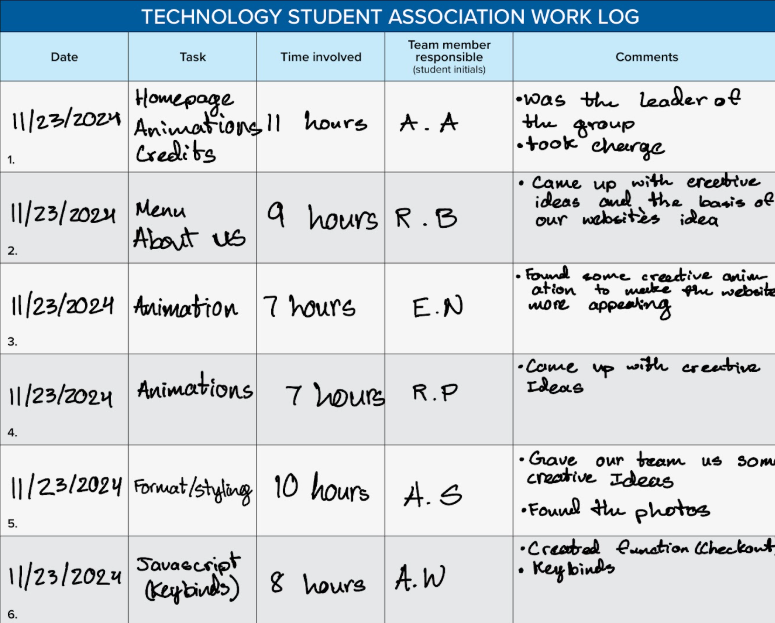 TECHNOLOGY STUDENT ASSOCIATION WORK LOG
Date
Task
Time involved
Team member
responsible
(student initials)
Comments
1.
11/23/2024
Homepage
Animations
Credits
11 hours
A.A
•Was the leader of
the group
•took charge
2.
11/23/2024
Menu
About us
9 hours
R.B
• Came up with creative
ideas and the basis of
our websites idea
3.
11/23/2024
Animation
7 hours
E.N
•Found some creative anim-
ation to make the website
more appealing
4.
11/23/2024
Animations
7 hours
R.P
•Came up with creative
Ideas
5.
11/23/2024
Format/styling
10 hours
A.S
•Gave our team us som
creative Ideas
•Found the photos
6.
11/23/2024
Javascript
(Keybinds)
8 hours
A.W
•Created function (Checkout
• Keybinds